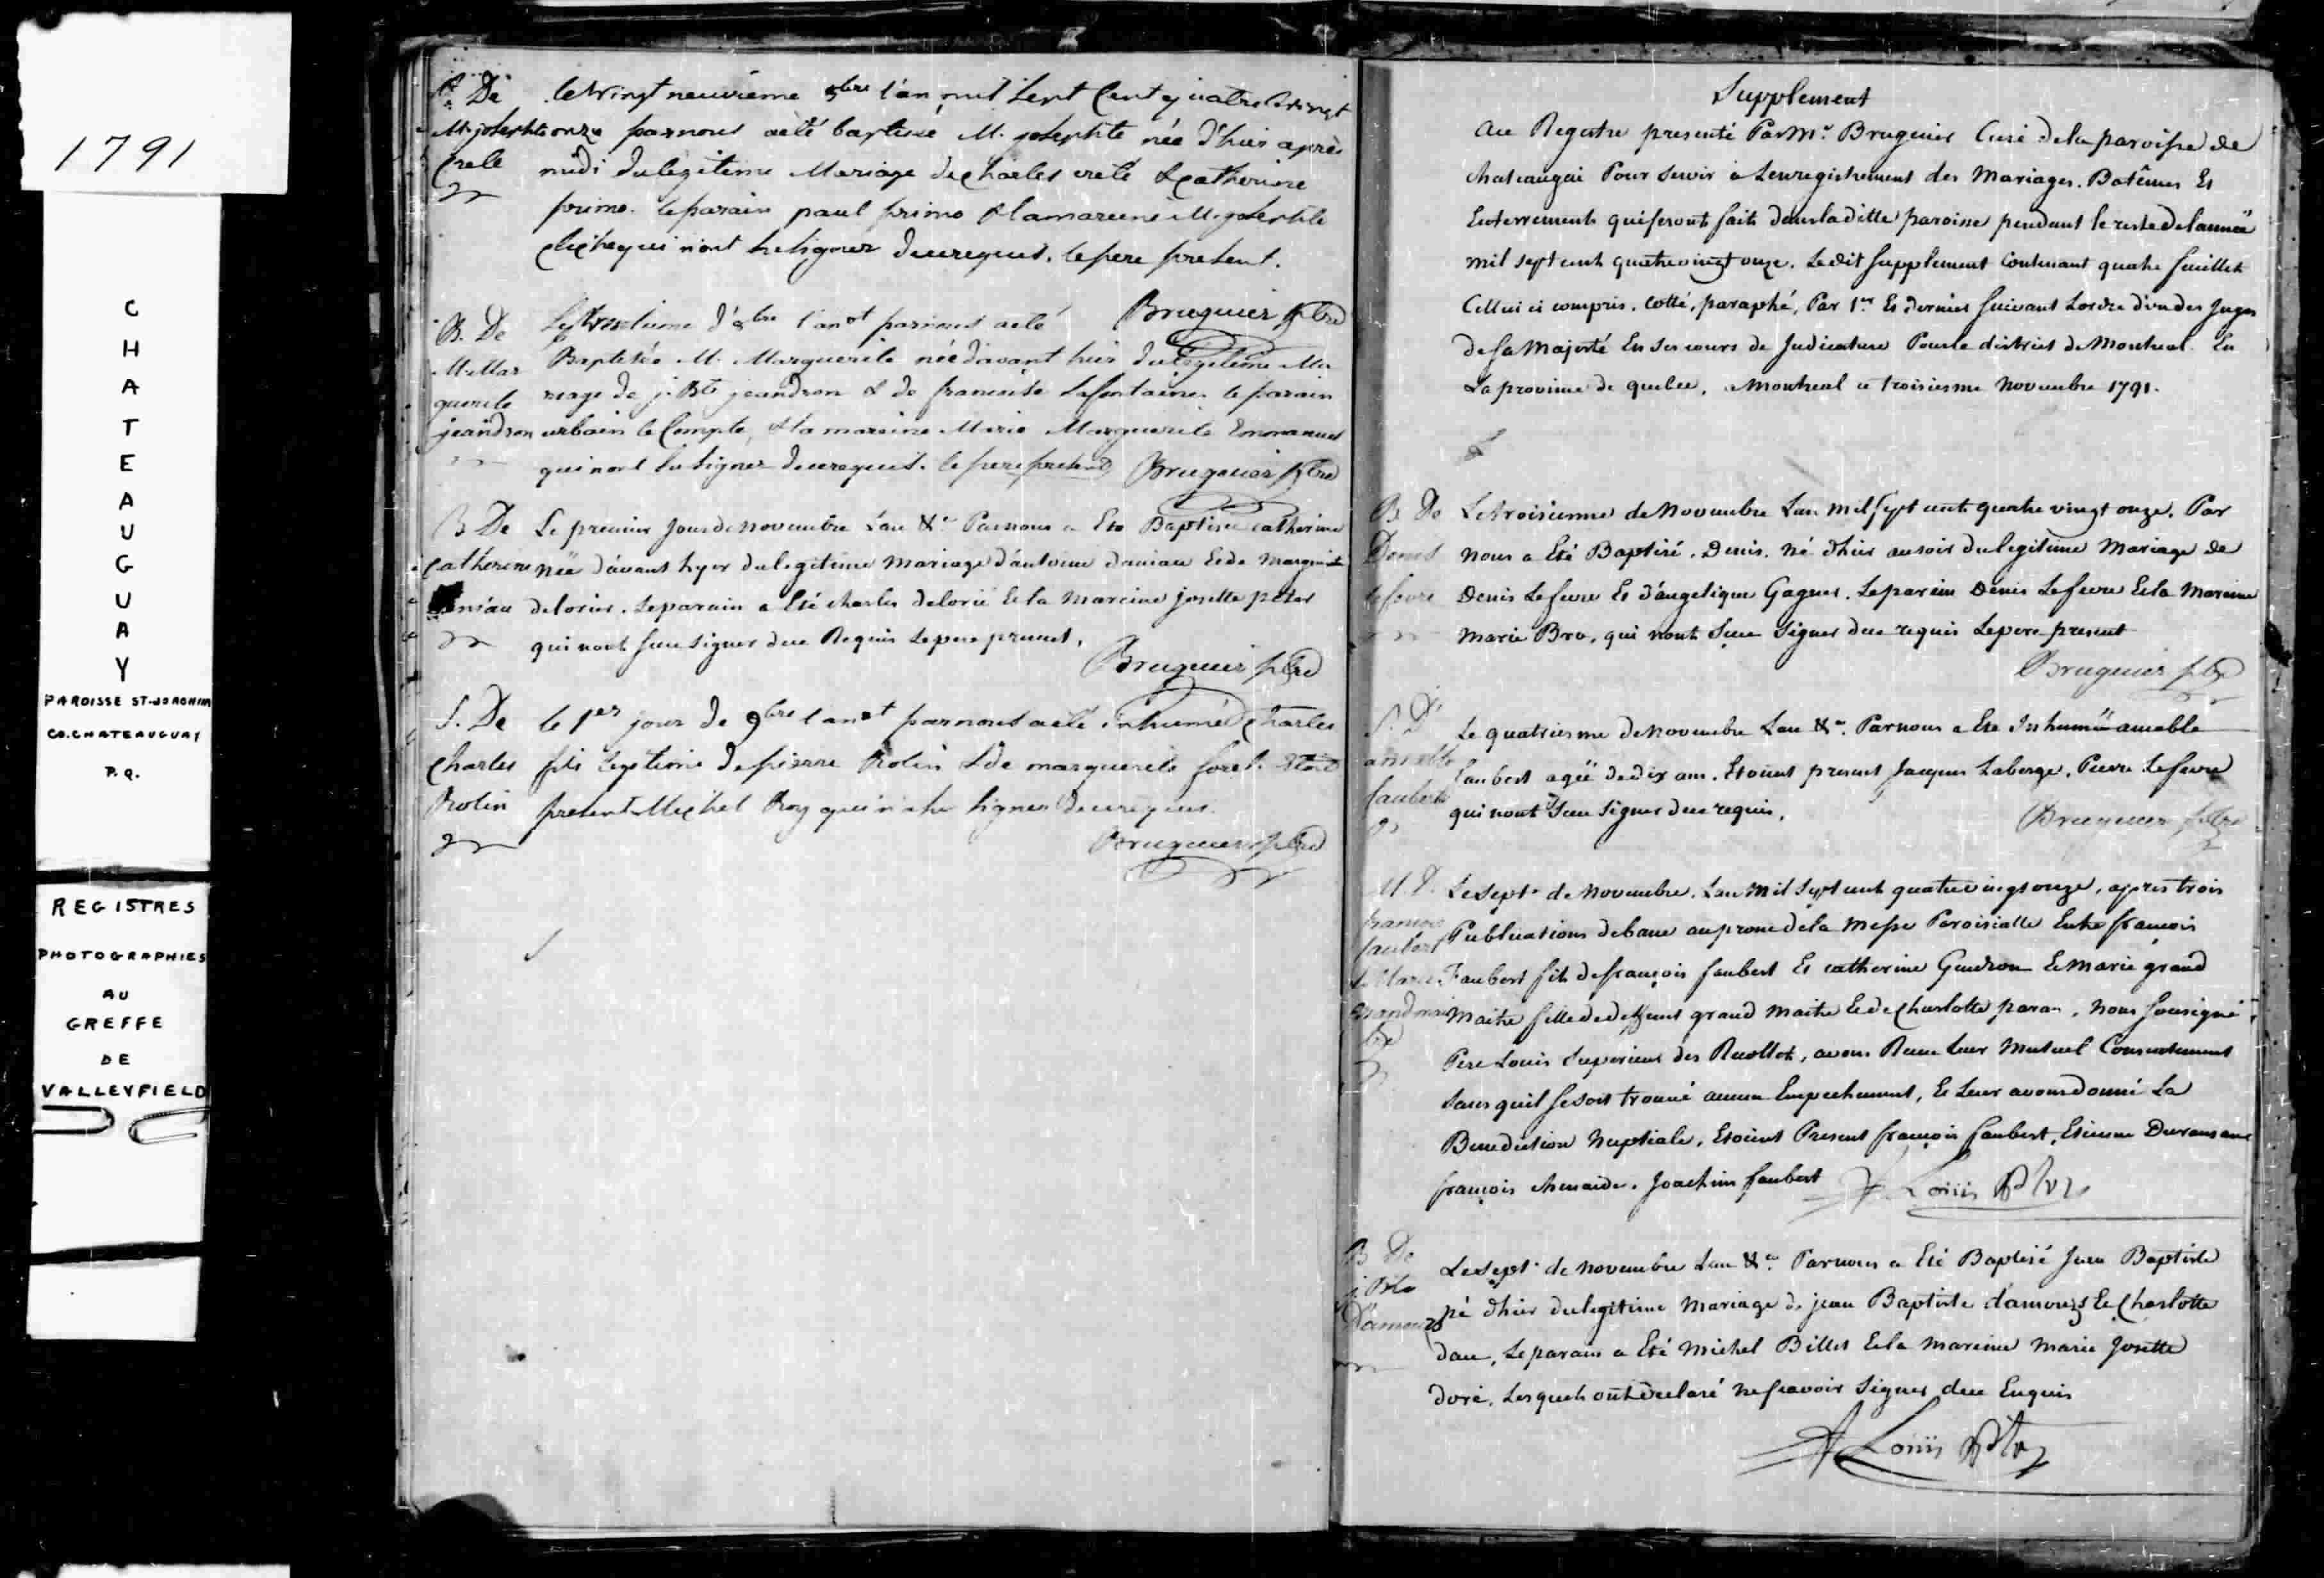 1791
C
H
A
T
E
A
U
G
U
A
Y
PAROISSE ST-JOACHIM
CO. CHATEAUGUAY
P.Q.
REGISTRES
PHOTOGRAPHIES
AU
GREFFE
DE
VALLEYFIELD
B. De
M. josephte
Crete
le vingt neuvième 8bre l'an mil sept Cent quatre vingt
onze par nous a eté baptisé M. josephte née d'hier après
midi du légitime Mariage de charles creté & catherine
primo. le parain paul primo & la mareine M. josephte
qui n'ont su signer de ce requis. le pere present.
Bruguier ptre
B. De
M. Mar
guerite
jeandron
Le trentieme d'8bre l'an &t par nous a eté
Baptisée M. Marguerite née d'avant hier du légitime Ma
riage de j. Bte jeandron & de francoise Lafontaine. le parain
urbain le Compte, & la mareine Marie Marguerite Emmanuel
qui n'ont su signer de ce requis. le pere present Bruguier ptre
B De
Catherine
niau
Le premier Jour de novembre L'an &c. Par nous a Eté Baptisée catherine
née d'avant hyer du legitime mariage d'antoine daniau et de marguerite
delorié. Le parain a Eté charles delorié Et la mareine josette
qui n'ont sceu signer de ce Requis le pere present.
Bruguier ptre
S. De
Charles
Rolin
le 1er jour de 9bre l'an &t par nous a eté inhumé Charles
fils legitime de pierre Rolin & de marguerite foret. Etoit
present Michel Roy qui n'a su signer de ce requis.
Bruguier ptre
Supplement
Au Registre presenté Par Mr. Bruguier Curé de la paroisse de
chateaugai Pour servir à Lenregistrement des Mariages. Batêmes Et
Enterrements qui seront faits dans la ditte paroisse pendant le reste de l'année
mil sept cent quatre vingt onze. Le dit supplement Contenant quatre feuillets
Cellui ci compris. Cotté, paraphé, Par 1er Et dernier suivant Lordre d'un des Juges
de sa Majesté En ses cours de Judicature Pour le district de Montreal. En
La province de quebec. a Montreal ce troisiesme Novembre 1791.
B De
Denis
lefevre
Le troisieme de Novembre Lan mil sept cent quatre vingt onze. Par
nous a Eté Baptisé. Denis. né d'hier au soir du legitime Mariage de
Denis Lefevre Et d'angelique Gagner. Le parein Denis Lefevre Et la Mareine
Marie Bro, qui n'ont Sceu Signer de ce requis Le pere present
Bruguier ptre
S. D'
amable
faubert
Le quatriesme de Novembre Lan &c. Par nous a Ete Inhumé amable
faubert agé de dix ans. Etoient present Jacques Laberge. Pierre Lefevre
qui n'ont Sceu Signer de ce requis.
Bruguier ptre
M. D.
francois
faubert
& Marie
Grandmai
tre
Le sept de Novembre. Lan mil sept cent quatre vingt onze, apres trois
Publications de bans au prone de la Messe Paroisialle Entre francois
Faubert fils de françois faubert Et catherine Gendron Et Marie grand
Maitre fille de deffunt grand Maitre Et de Charlotte paran. Nous sousigné
Pere Louis Superieur des Recollets, avons Receu Leur Mutuel Consentement
sans quil se soit trouvé aucun Empechement, Et Leur avons donné La
Benediction Nuptiale. Etoient Present françois faubert, Etienne
françois chenaide. Joachim faubert Louis Ptre
B De
j. Bte
D'amours
Le sept de Novembre Lan &c. Par nous a Eté Baptisé Jean Baptiste
né d'hier du legitime Mariage de jean Baptiste damours Et Charlotte
dau, Le parain a Eté Michel Billet Et la mareine Marie Josette
doré. Lesquels ont declaré ne scavoir Signer de ce Enquis
Louis Ptre